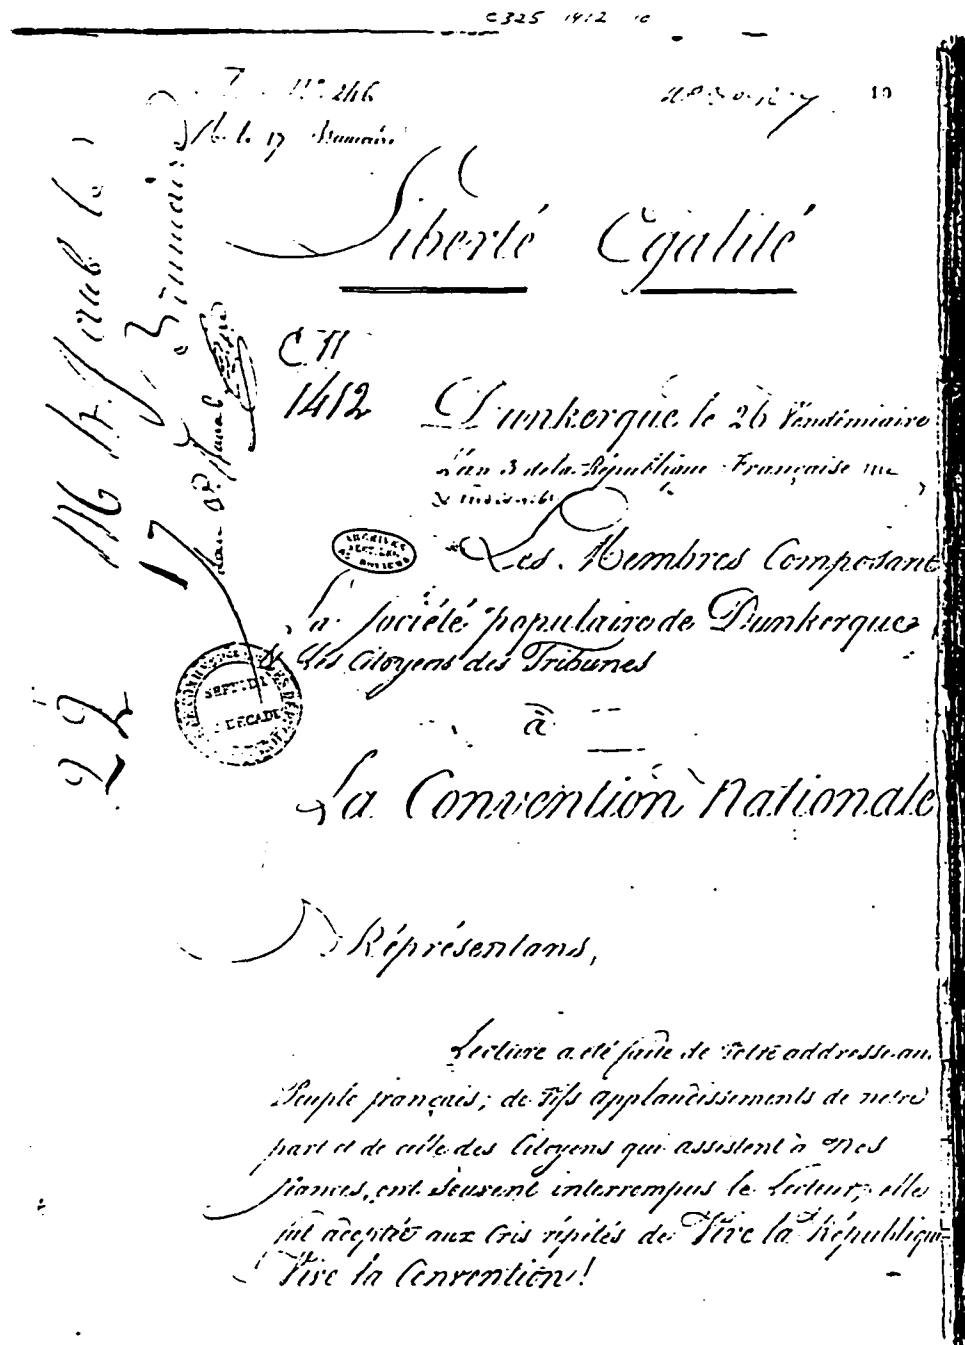 C325 1412 10
N° 246
10
le 17 Brumaire
Liberté Egalité
C II
1412
Dunkerque le 26 Vendémiaire
L'an 3 de la République Française une
& indivisible
Les Membres Composant
la Société populaire de Dunkerque
& les Citoyens des Tribunes
à
La Convention Nationale
Réprésentans,
Lecture a été faite de Votre addresse au
Peuple français; de Vifs applaudissements de notre
part et de celle des Citoyens qui assistent à Nos
séances, ont souvent interrompus le Lecteur; elle
fut acceptée aux Cris répétés de Vive la République
Vive la Convention!
22
17 Brumaire
ARCHIVES
SEPTIDI
DECADE